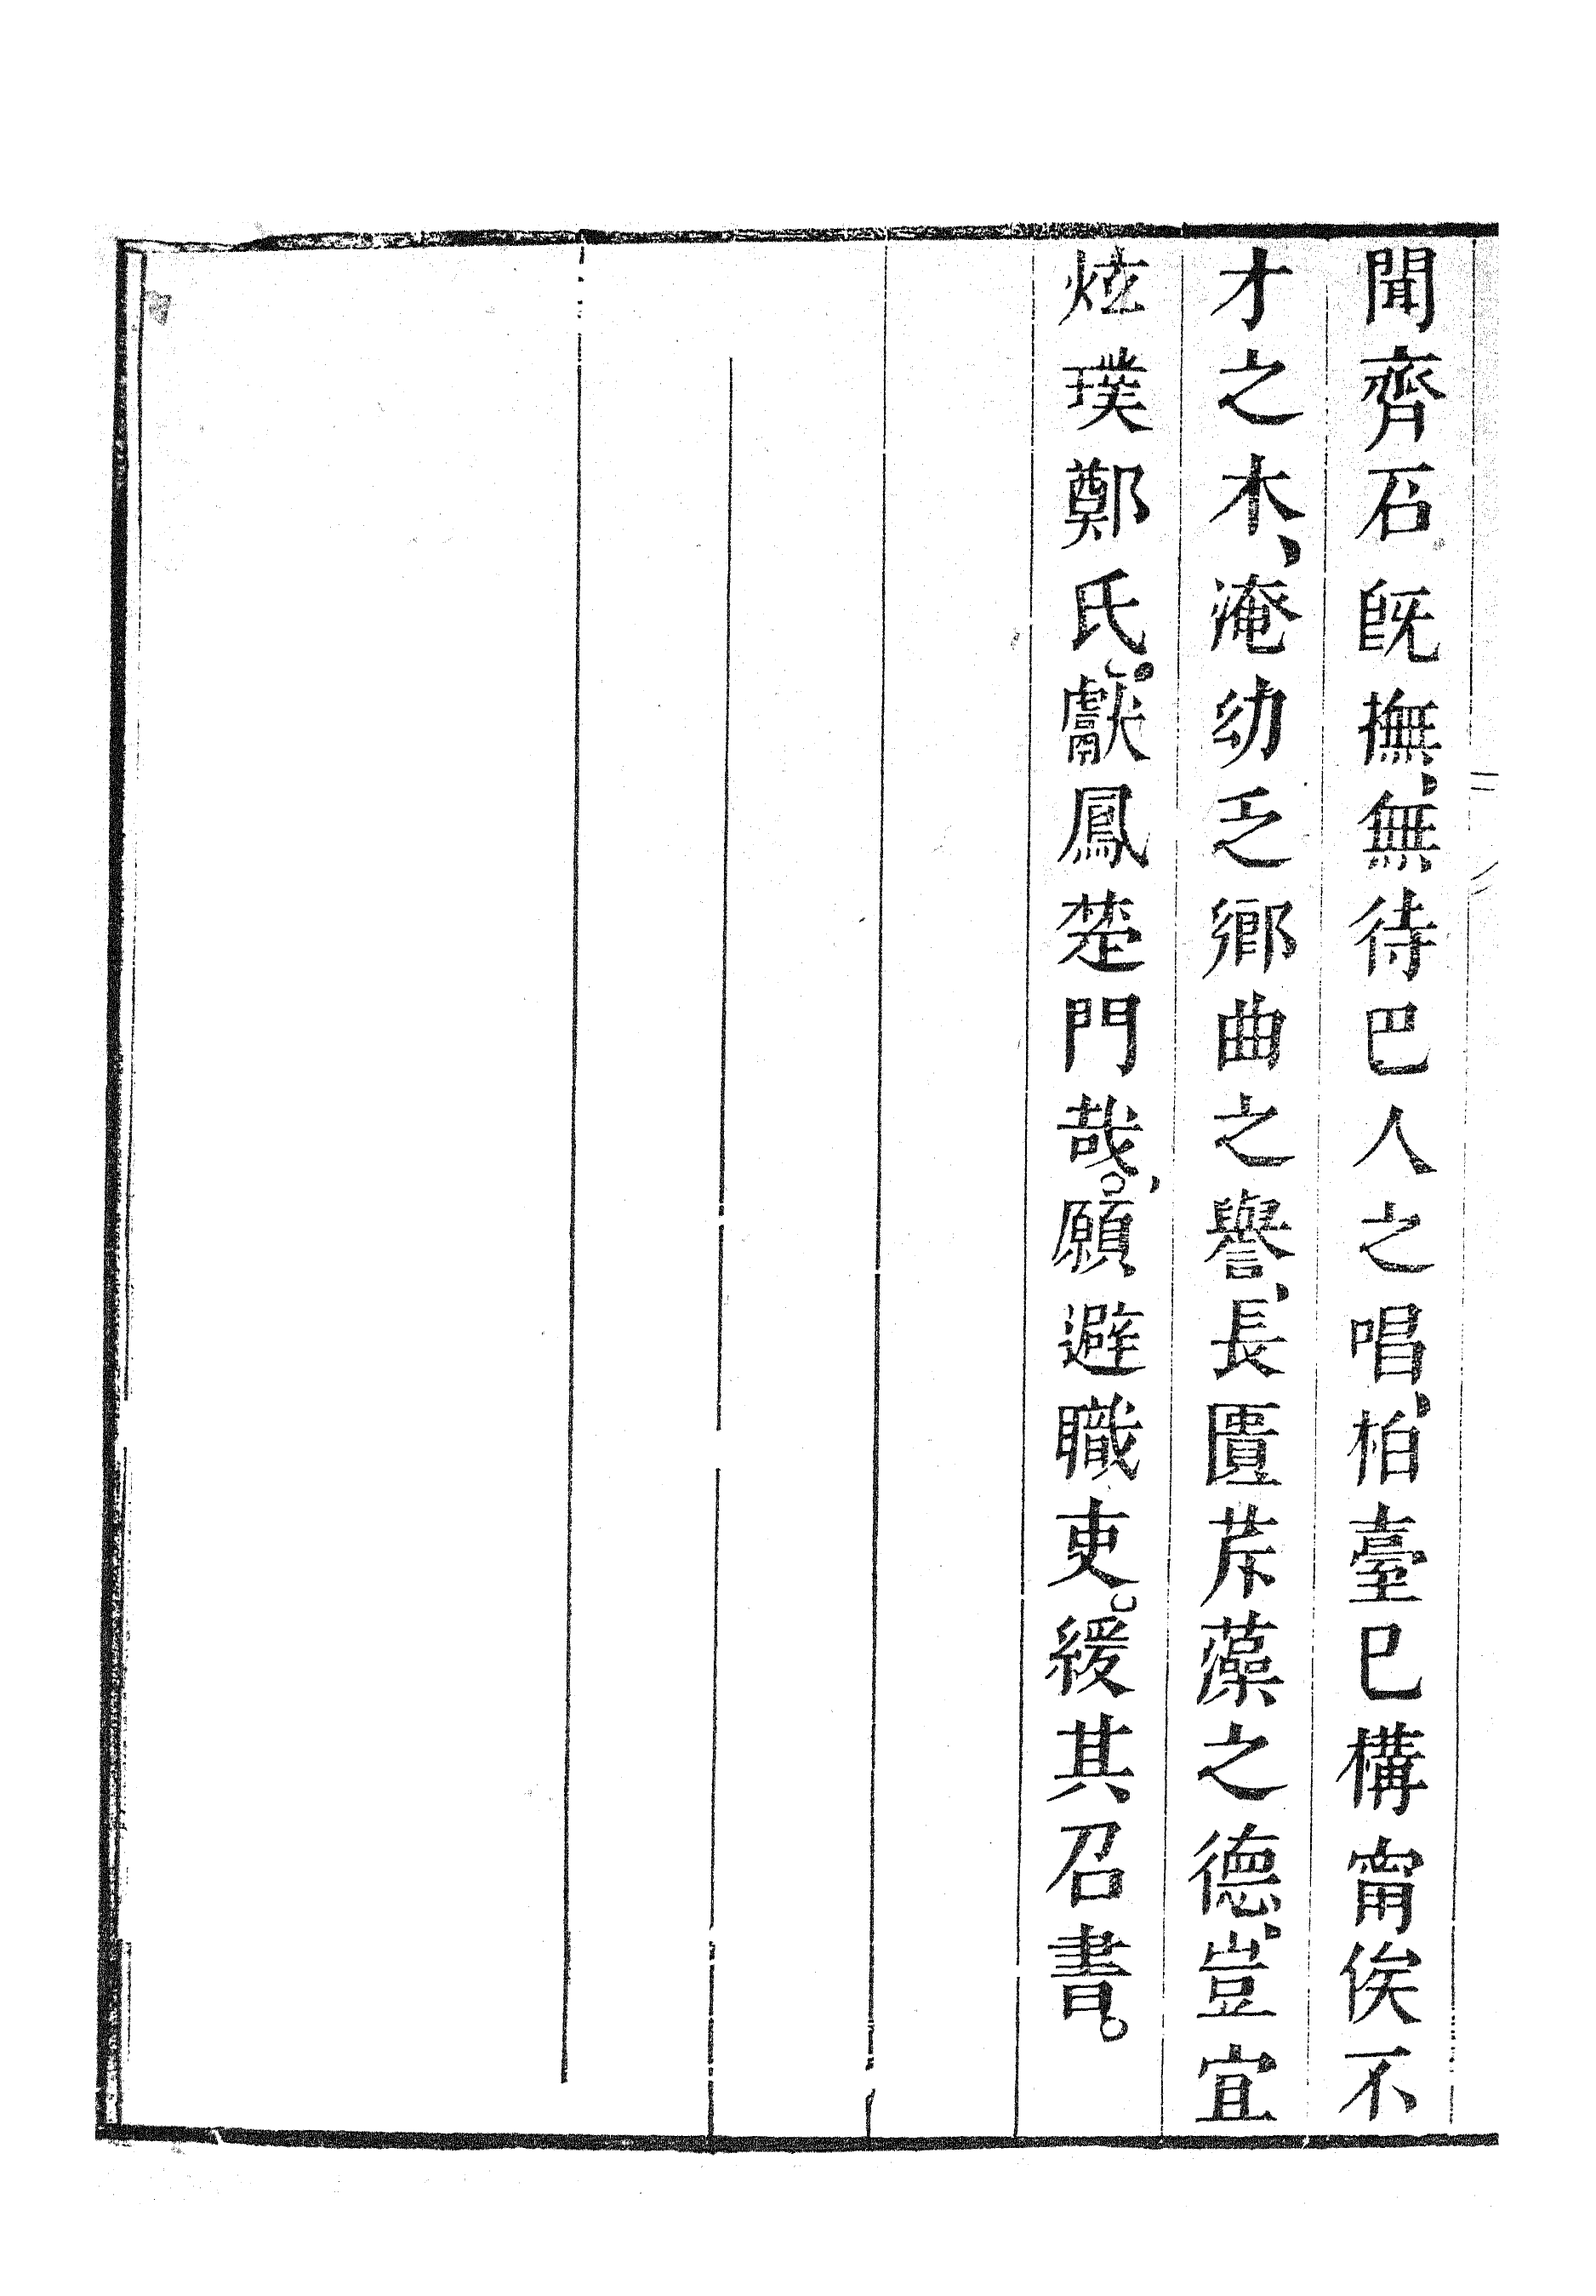 聞齊石既撫、無待巴人之唱、柏臺已構甯俟不
才之木、淹幼乏鄉曲之譽、長匱芹藻之德、豈宜
炫璞鄭氏。獻鳳楚門哉。願避職吏。緩其召書。